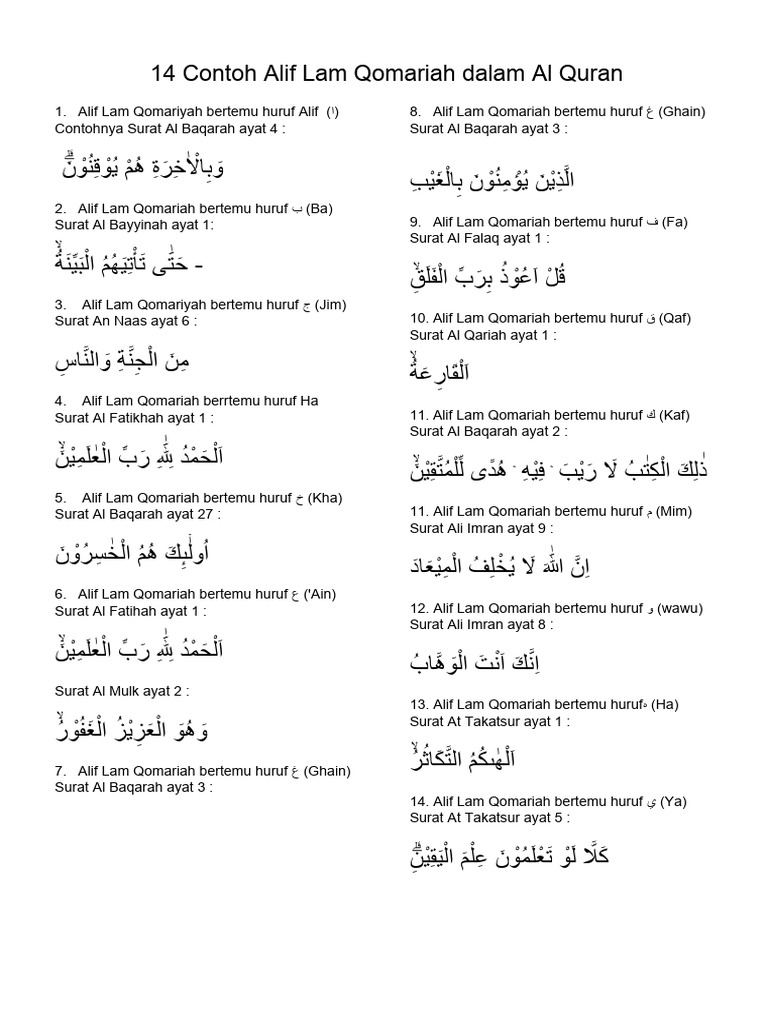 14 Contoh Alif Lam Qomariah dalam Al Quran
1. Alif Lam Qomariyah bertemu huruf Alif (ا)
Contohnya Surat Al Baqarah ayat 4 :
وَبِالْاٰخِرَةِ هُمْ يُوْقِنُوْنَۗ
2. Alif Lam Qomariah bertemu huruf ب (Ba)
Surat Al Bayyinah ayat 1:
حَتّٰى تَأْتِيَهُمُ الْبَيِّنَةُۙ -
3. Alif Lam Qomariyah bertemu huruf ج (Jim)
Surat An Naas ayat 6 :
مِنَ الْجِنَّةِ وَالنَّاسِ
4. Alif Lam Qomariah berrtemu huruf Ha
Surat Al Fatikhah ayat 1 :
اَلْحَمْدُ لِلّٰهِ رَبِّ الْعٰلَمِيْنَۙ
5. Alif Lam Qomariah bertemu huruf خ (Kha)
Surat Al Baqarah ayat 27 :
اُولٰۤىِٕكَ هُمُ الْخٰسِرُوْنَ
6. Alif Lam Qomariah bertemu huruf ع ('Ain)
Surat Al Fatihah ayat 1 :
اَلْحَمْدُ لِلّٰهِ رَبِّ الْعٰلَمِيْنَۙ
Surat Al Mulk ayat 2 :
وَهُوَ الْعَزِيْزُ الْغَفُوْرُۙ
7. Alif Lam Qomariah bertemu huruf غ (Ghain)
Surat Al Baqarah ayat 3 :
8. Alif Lam Qomariah bertemu huruf غ (Ghain)
Surat Al Baqarah ayat 3 :
الَّذِيْنَ يُؤْمِنُوْنَ بِالْغَيْبِ
9. Alif Lam Qomariah bertemu huruf ف (Fa)
Surat Al Falaq ayat 1 :
قُلْ اَعُوْذُ بِرَبِّ الْفَلَقِۙ
10. Alif Lam Qomariah bertemu huruf ق (Qaf)
Surat Al Qariah ayat 1 :
اَلْقَارِعَةُۙ
11. Alif Lam Qomariah bertemu huruf ك (Kaf)
Surat Al Baqarah ayat 2 :
ذٰلِكَ الْكِتٰبُ لَا رَيْبَ ۛ فِيْهِ ۛ هُدًى لِّلْمُتَّقِيْنَۙ
11. Alif Lam Qomariah bertemu huruf م (Mim)
Surat Ali Imran ayat 9 :
اِنَّ اللّٰهَ لَا يُخْلِفُ الْمِيْعَادَ
12. Alif Lam Qomariah bertemu huruf و (wawu)
Surat Ali Imran ayat 8 :
اِنَّكَ اَنْتَ الْوَهَّابُ
13. Alif Lam Qomariah bertemu hurufه (Ha)
Surat At Takatsur ayat 1 :
اَلْهٰىكُمُ التَّكَاثُرُۙ
14. Alif Lam Qomariah bertemu huruf ي (Ya)
Surat At Takatsur ayat 5 :
كَلَّا لَوْ تَعْلَمُوْنَ عِلْمَ الْيَقِيْنِۗ